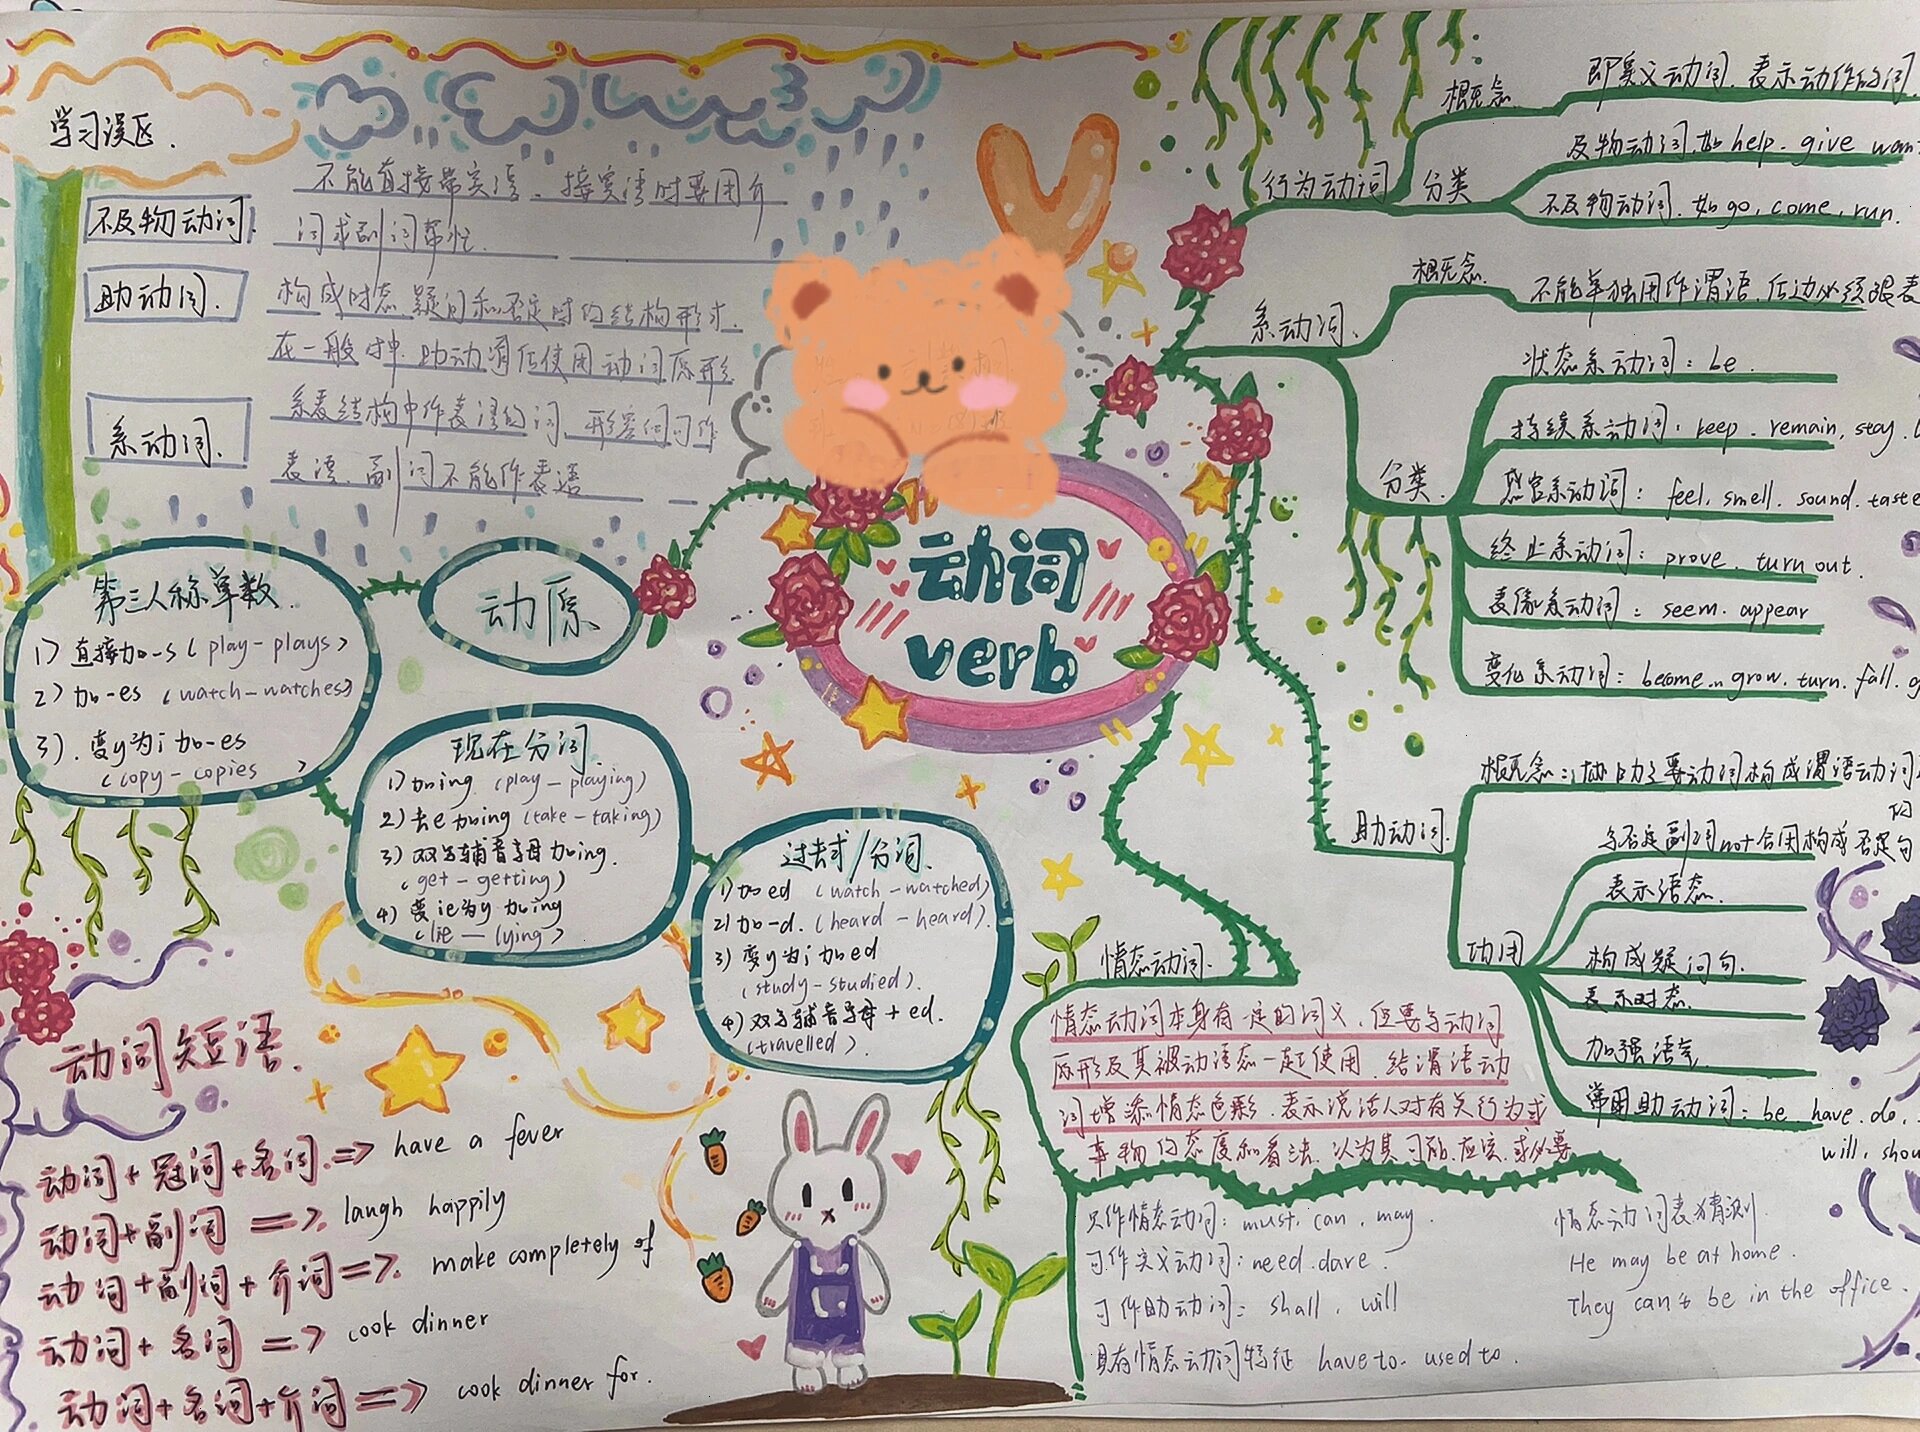 学习误区.
不及物动词.
不能直接带宾语、接宾语时要用介
词或副词帮忙.
助动词.
构成时态.疑问和否定时的结构形式.
在一般时中.助动词后使用动词原形
系动词.
系表结构中作表语的词.形容词可作
表语.副词不能作表语
动词
verb
动原
第三人称单数.
1) 直接加-s ( play-plays)
2) 加-es (watch-watches)
3). 变y为i加-es
(copy-copies )
现在分词.
1) 加ing (play-playing)
2) 去e加ing (take-taking)
3) 双写辅音字母加ing.
( get-getting)
4) 变ie为y加ing
(lie—lying)
过去式/分词.
1) 加ed (watch-watched)
2) 加-d. (heard-heard).
3) 变y为i加ed
(study-studied).
4) 双写辅音字母+ed.
(travelled).
动词短语.
动词+冠词+名词.=> have a fever
动词+副词 => laugh happily
动词+副词+介词=>. make completely of
动词+名词 => cook dinner
动词+名词+介词=> cook dinner for.
行为动词
概念
即实义动词.表示动作的词
分类
及物动词.如help.give want
不及物动词.如go,come,run.
系动词.
概念
不能单独用作谓语.后边必须跟表
分类.
状态系动词:be.
持续系动词:keep.remain,stay.
感官系动词:feel.smell.sound.taste
终止系动词:prove.turn out.
表像系动词:seem.appear
变化系动词:become.grow.turn.fall.
助动词.
概念:协助主要动词构成谓语动词
的
功用
与否定副词not合用构成否定句
表示语态.
构成疑问句.
表示时态.
加强语气
常用助动词:be.have.do.
will,shou
情态动词.
情态动词本身有一定的词义.但要与动词
原形及其被动语态一起使用.给谓语动
词增添情态色彩.表示说话人对有关行为或
事物的态度和看法.以为其可能.应该.或必要
只作情态动词:must.can.may.
可作实义动词:need.dare.
可作助动词:shall.will
具有情态动词特征 have to.used to.
情态动词表猜测.
He may be at home.
They can't be in the office.